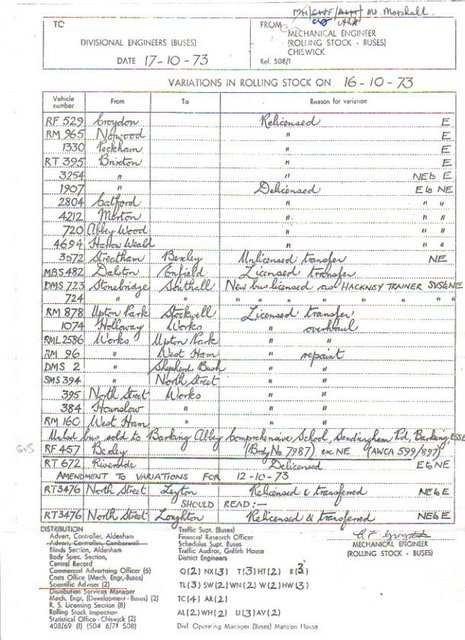 Mr Marshall
TO
DIVISIONAL ENGINEERS (BUSES)
DATE 17-10-73
FROM
MECHANICAL ENGINEER
(ROLLING STOCK - BUSES)
CHISWICK
Ref. 508/1
VARIATIONS IN ROLLING STOCK ON 16-10-73
Vehicle number From To Reason for variation
RF 529 Croydon Relicensed E
RM 965 Norwood " E
1330 Peckham " E
RT 395 Brixton " E
3254 " " NEb E
1907 " Delicensed E to NE
2804 Catford " " "
4212 Merton " " "
720 Abbey Wood " " "
4694 Harrow Weald " " "
3572 Streatham Bexley Unlicensed transfer NE
MBS 482 Dalston Enfield Licensed transfer
DMS 723 Stonebridge Southall New bus licensed as HACKNEY TRAINER
724 " " " " " " "
RM 878 Upton Park Stockwell Licensed transfer
1074 Holloway Works " overhaul
RML 2586 Works Upton Park "
RM 96 " West Ham " repaint
DMS 2 " Shepherds Bush "
SMS 394 " North Street "
395 North Street Works "
384 Hounslow " "
RM 160 West Ham " "
bus sold to Barking Abbey Comprehensive School, Sandringham Rd, Barking, ESSEX
RF 457 Bexley (Body No 7987) ex NE (AWCA 599/897)
RT 672 Riverside Delicensed E to NE
AMENDMENT TO VARIATIONS FOR 12-10-73
RT3476 North Street Leyton Relicensed & transferred NEb E
SHOULD READ:-
RT3476 North Street Loughton Relicensed & transferred NEb E
DISTRIBUTION
Advert. Controller, Aldenham
Advert. Controller, Camberwell
Blinds Section, Aldenham
Body Spec. Section,
Central Record
Commercial Advertising Officer (6)
Costs Office (Mech. Engr.-Buses)
Scientific Adviser (2)
Distribution Services Manager
Mech. Engr. (Development - Buses) (2)
R. S. Licensing Section (8)
Rolling Stock Inspection
Statistical Office - Chiswick (2)
Traffic Supt. (Buses)
Financial Research Officer
Schedules Supt. Buses
Traffic Auditor, Griffith House
District Engineers
Q(2) NX(3) T(3) HT(2)
TL(3) SW(2) WN(2) W(2) HW(3)
TC(4) AR(2)
AL(2) WH(2) U(3) AV(2)
Divl. Operating Manager (Buses) Mansion House
MECHANICAL ENGINEER
(ROLLING STOCK - BUSES)